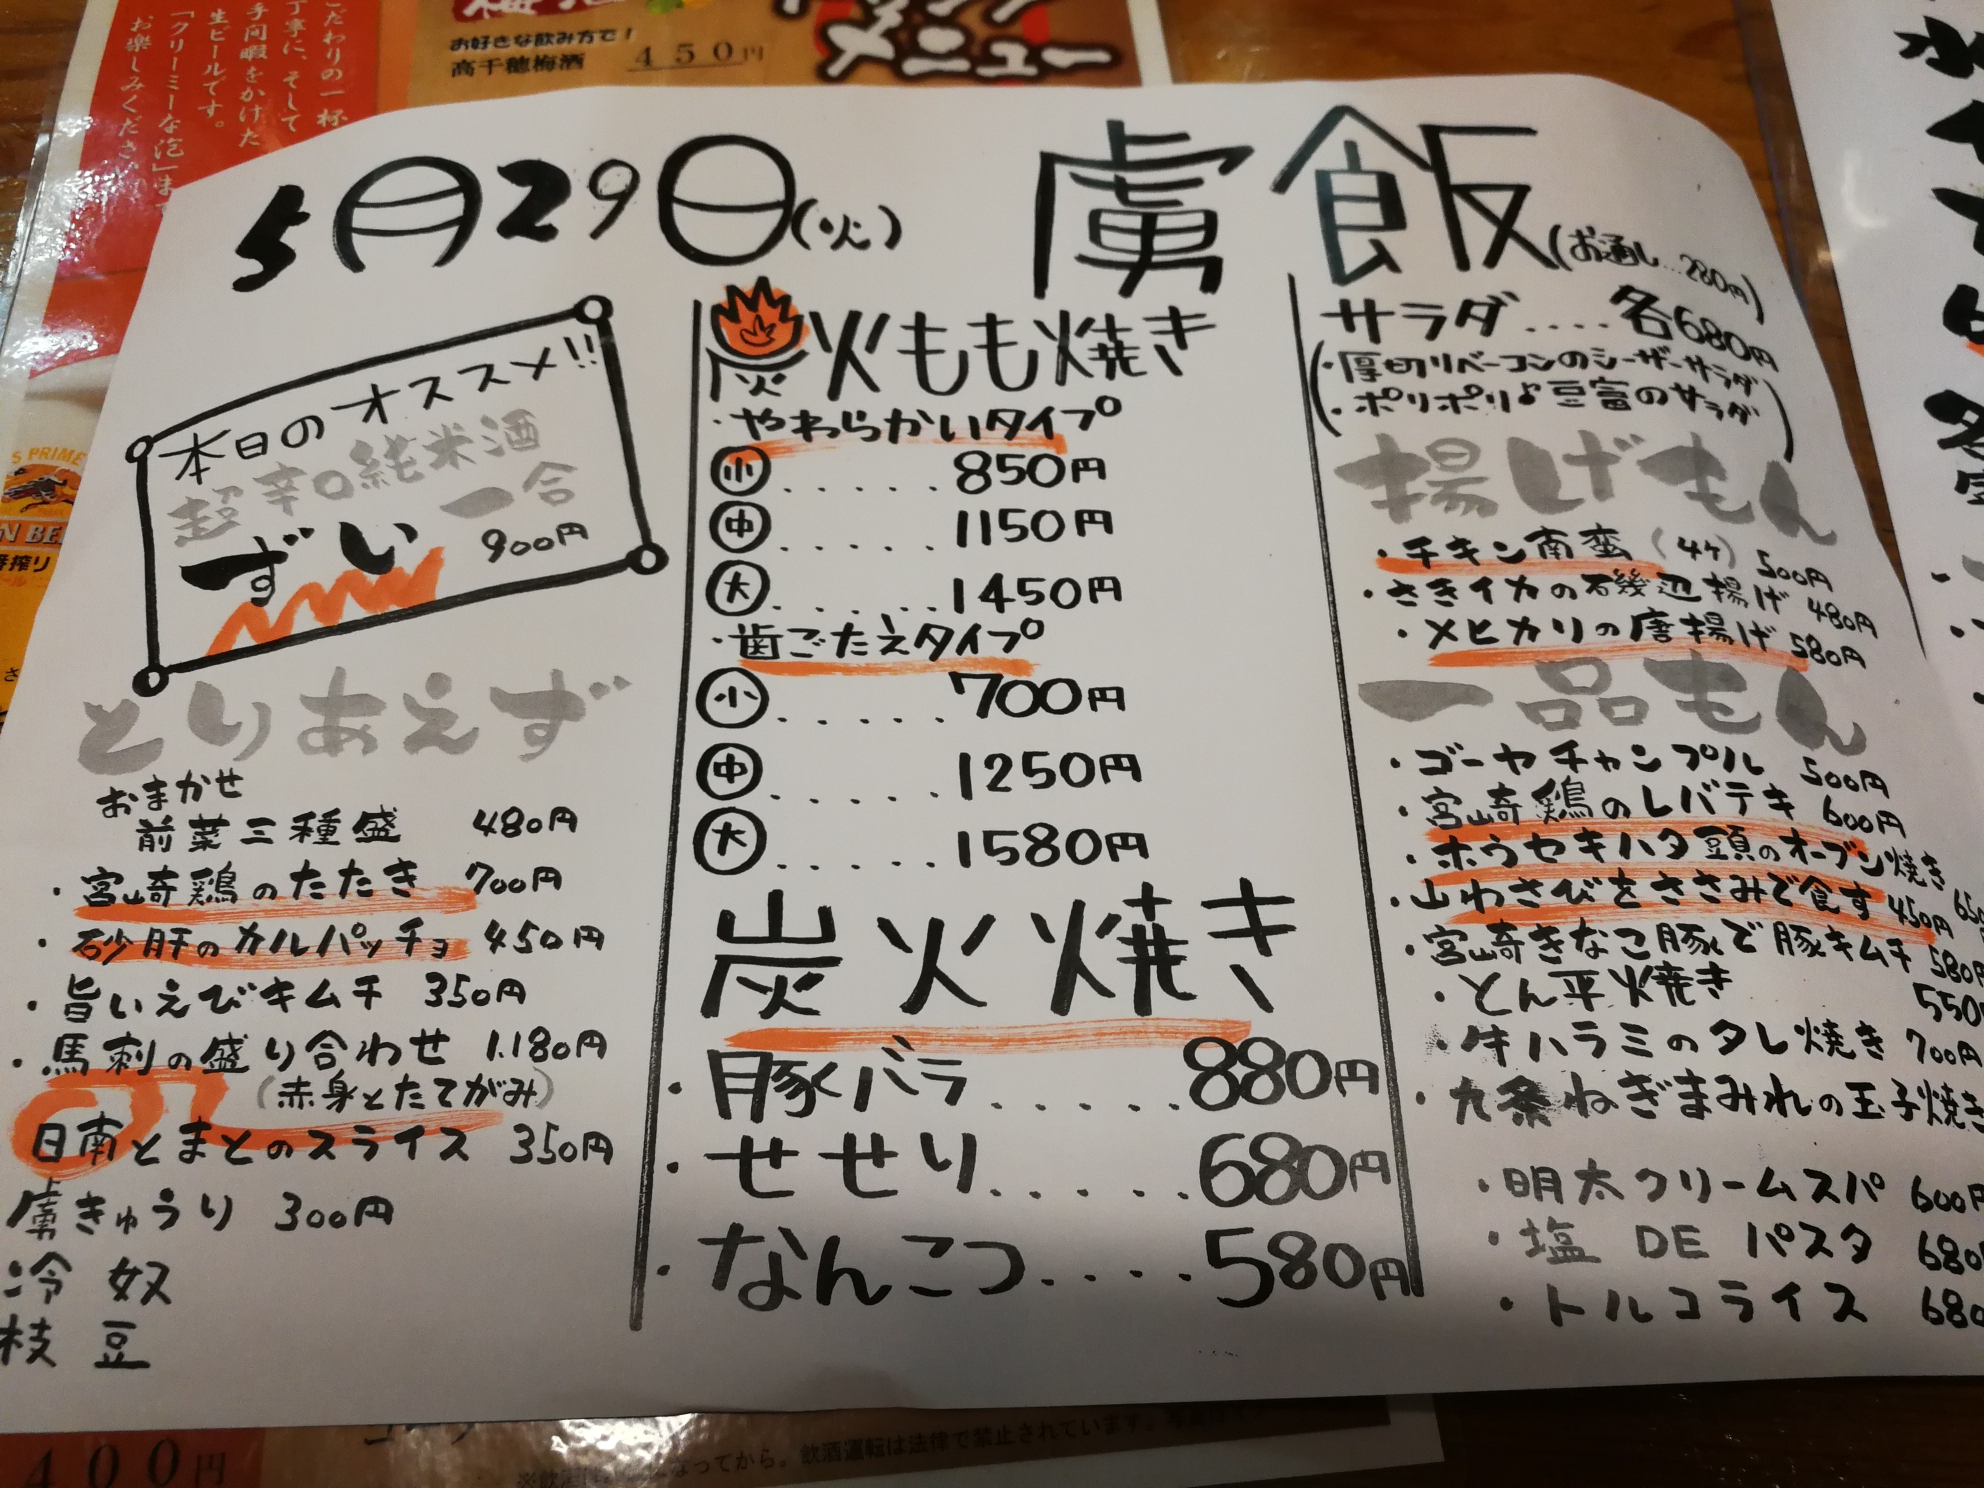 こだわりの一杯
丁寧に、そして
手間暇をかけた
生ビールです。
「クリーミーな泡」ま
お楽しみくださ
お好きな飲み方で!
高千穂梅酒 450円
メニュー
5月29日(火)
虜飯(お通し…280円)
本日のオススメ!!
超辛口純米酒
ずい 一合 900円
とりあえず
おまかせ
前菜三種盛 480円
・宮崎鶏のたたき 700円
・砂肝のカルパッチョ 450円
・旨いえびキムチ 350円
・馬刺の盛り合わせ 1,180円
(赤身とたてがみ)
日南とまとのスライス 350円
虜きゅうり 300円
冷奴
枝豆
炭火もも焼き
・やわらかいタイプ
小......850円
中.....1150円
大......1450円
・歯ごたえタイプ
小......700円
中......1250円
大.....1580円
炭火焼き
・豚バラ......880円
・せせり......680円
・なんこつ....580円
サラダ....各680円
(・厚切りベーコンのシーザーサラダ
・ポリポリ♪豆富のサラダ)
揚げもん
・チキン南蛮(4ヶ) 500円
・さきイカの石幾辺揚げ 480円
・メヒカリの唐揚げ 580円
一品もん
・ゴーヤチャンプル 500円
・宮崎鶏のレバテキ 600円
・ホウセキハタ頭のオーブン焼き
・山わさびをささみで食す 450円
・宮崎きなこ豚で豚キムチ 580円
・とん平焼き 550
・牛ハラミのタレ焼き 700円
・九条ねぎまみれの玉子焼き
・明太クリームスパ 600円
・塩DEパスタ 680
・トルコライス 680
400円
なってから。飲酒運転は法律で禁止されています。